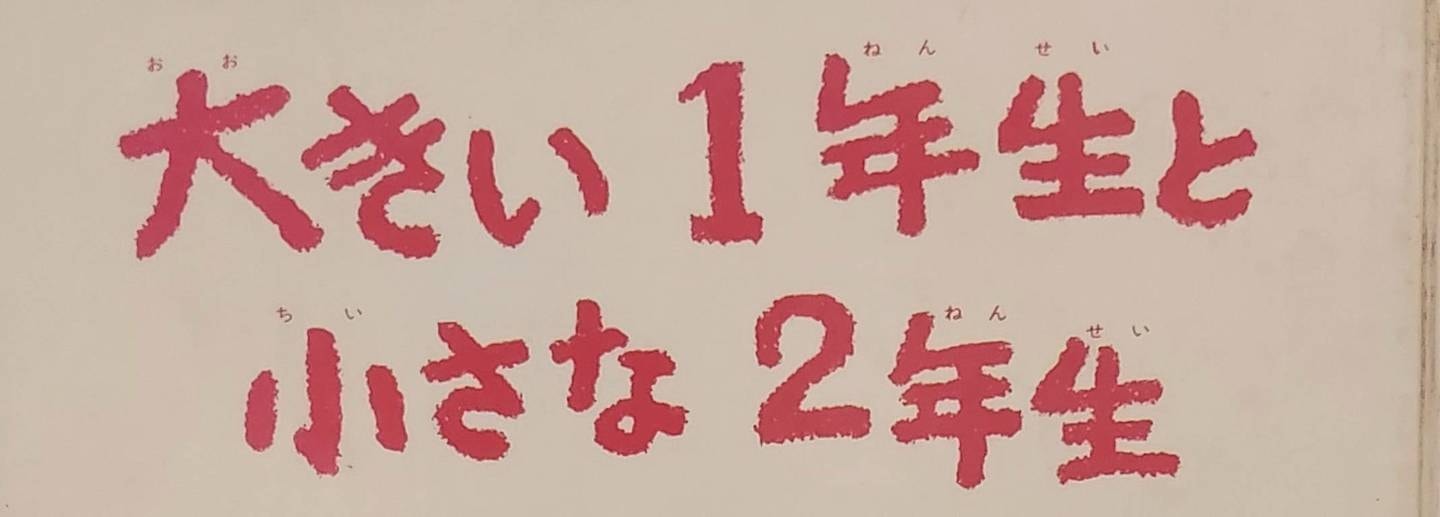 おお ねん せい
大きい 1年生と
ちい ねん せい
小さな 2年生